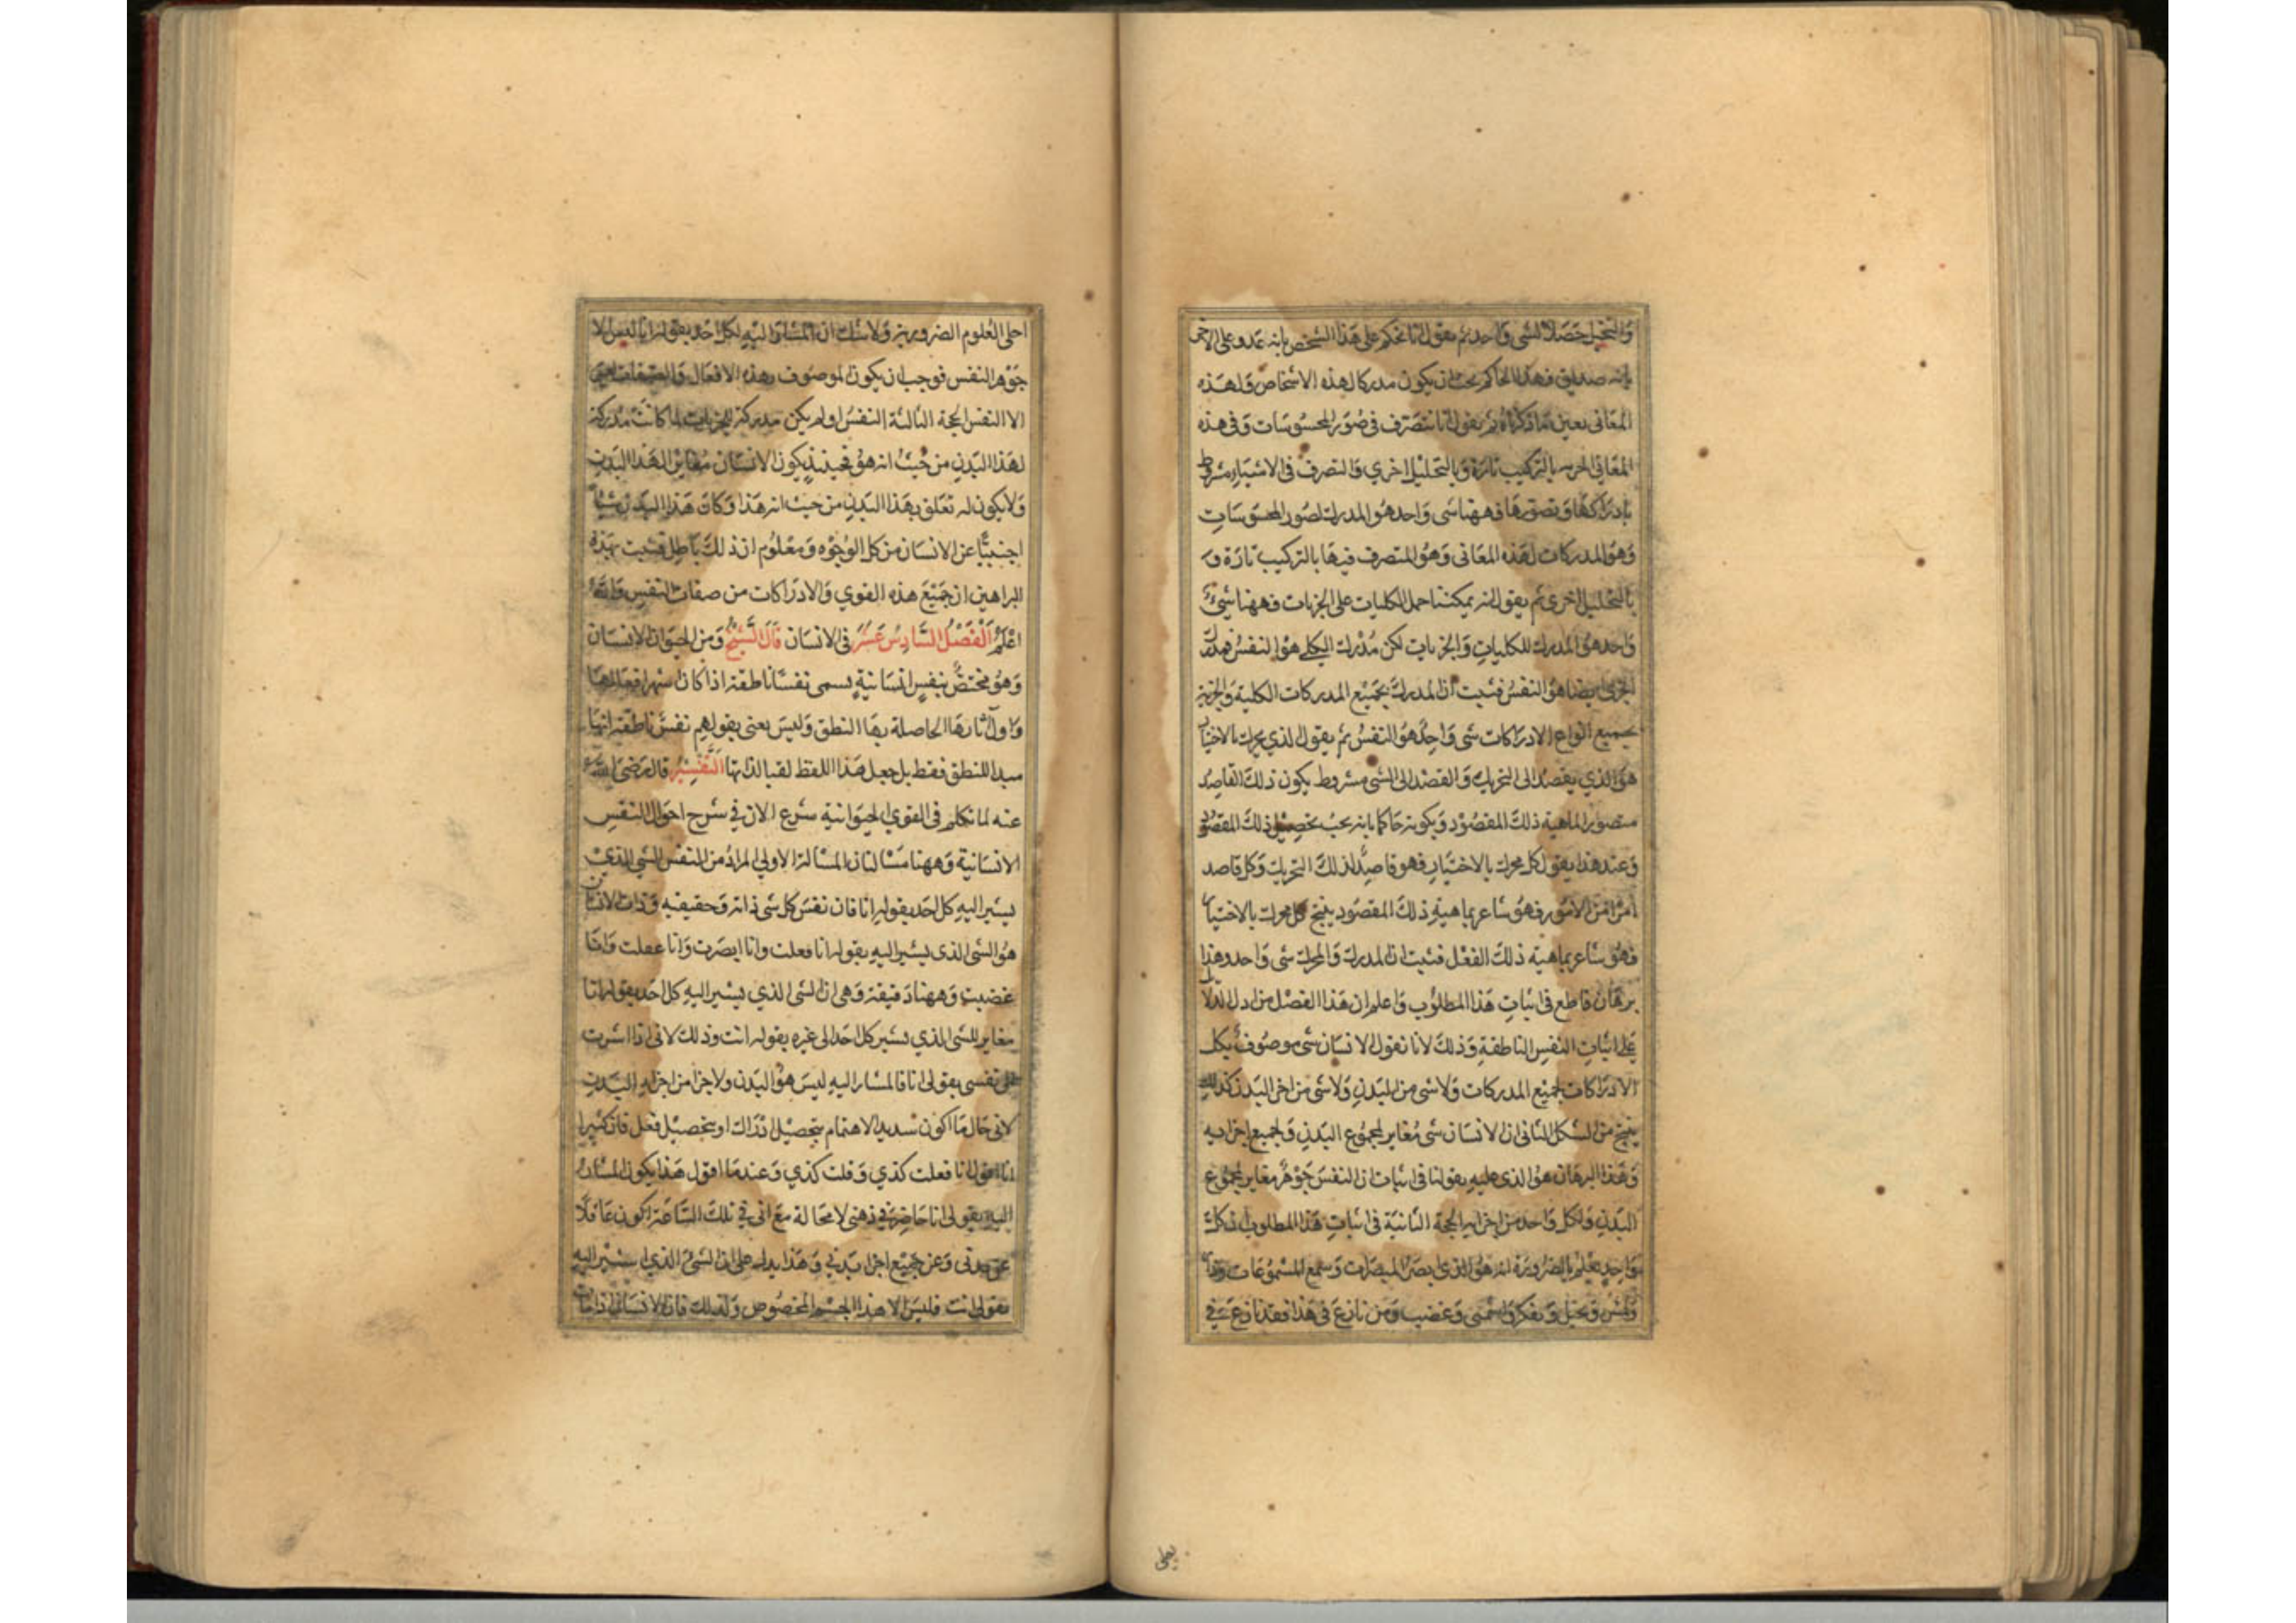 والتخيل حصلا لشى واحد ثم يقول انا نحكم على هذا الشخص بانه عدو وعلى الاخر
بانه صديق فهذا الحاكم يجب ان يكون مدركا لهذه الاشخاص ولهذه
المعانى بعين ما ذكرناه ثم يقول انا نتصرف فى صور المحسوسات وفى هذه
المعانى الجزئية بالتركيب تارة وبالتحليل اخري والتصرف فى الاشياء مشروط
بادراكها وتصورها فههنا شى واحد هو المدرك لصور المحسوسات
وهو المدركات لهذه المعانى وهو المتصرف فيها بالتركيب تارة و
بالتحليل اخرى ثم يقول انه يمكننا حمل الكليات على الجزيات فههنا شىء
واحد هو المدرك للكليات والجزيات لكن مدرك الكلى هو النفس فمدرك
الجزى ايضا هو النفس فثبت ان المدرك بجميع المدركات الكلية والجزية
بجميع انواع الادراكات شى واحد هو النفس ثم يقول الذي يحرك بالاختيار
هو الذي يقصد الى التحريك والقصد الى الشى مشروط بكون ذلك القاصد
متصورا لماهية ذلك المقصود وبكونه حاكما بانه يجب تحصيل ذلك المقصود
وعند هذا يقول كل محرك بالاختيار فهو قاصد لذلك التحريك وكل قاصد
امرا من الامور فهو شاعر بماهية ذلك المقصود ينتج كل محرك بالاختيار
فهو شاعر بماهية ذلك الفعل فثبت ان المدرك والمحرك شى واحد وهذا
برهان قاطع فى اثبات هذا المطلوب واعلم ان هذا الفصل من ادل الدلايل
على اثبات النفس الناطقة وذلك لانا نقول الانسان شى موصوف بكل
الادراكات لجميع المدركات ولا شى من البدن ولا شى من اجزا البدن كذلك
ينتج من الشكل الثانى ان الانسان شى مغاير لمجموع البدن ولجميع اجزايه
وهذا البرهان هو الذى عليه يقولنا فى اثبات ان النفس جوهر مغاير لمجموع
البدن ولكل واحد من اجزايه الحجة الثانية فى اثبات هذا المطلوب ان كل
واحد يعلم بالضرورة انه هو الذى ابصر المبصرات وسمع المسموعات وذاق
ولمس وتخيل وتفكر واشتهى وغضب ومن نازع فى هذا فقد نازع فى
يعلى
اجلى العلوم الضرورية ولا شك ان المشار اليه لكل احد بقوله انا ليس الا
جوهر النفس فوجب ان يكون الموصوف بهذه الافعال والصفات ليس
الا النفس الحجة الثالثة النفس لو لم يكن مدركة للجزيات لما كانت مدركة
لهذا البدن من حيث انه هو فحينيذ يكون الانسان مغايرا لهذا البدن
ولا يكون له تعلق بهذا البدن من حيث انه هذا وكان هذا البدن شيا
اجنبيا عن الانسان من كل الوجوه ومعلوم ان ذلك باطل فثبت بهذه
البراهين ان جميع هذه القوي والادراكات من صفات النفس والله
اعلم الفصل السادس عشر فى الانسان قال الشيخ ومن الحيوان الانسان
وهو مختص بنفس انسانية يسمى نفسا ناطقة اذا كان اشهر افعالها
واول آثارها الحاصلة بها النطق وليس يعنى بقولهم نفس ناطقة انها
مبدا للنطق فقط بل جعل هذا اللفظ لقبا لذاتها التفسير قال رضى الله
عنه لما تكلم فى القوي الحيوانية شرع الان فى شرح احوال النفس
الانسانية وههنا مسالتان المسالة الاولى المراد من النفس الشى الذي
يشير اليه كل احد بقوله انا فان نفس كل شى ذاته وحقيقته وذات الانسان
هو الشى الذى يشير اليه بقوله انا فعلت وانا ابصرت وانا عقلت وانا
غضبت وههنا دقيقة وهى ان الشى الذي يشير اليه كل احد بقوله انا
مغاير للشى الذي يشير كل احد الى غيره بقوله انت وذلك لانى اذا اشرت
على نفسى بقولى انا فالمشار اليه ليس هو البدن ولا جزا من اجزايه البدن
لانى حال ما اكون شديد الاهتمام بتحصيل ادراك او بتحصيل فعل فان كثيرا
انا اقول انا فعلت كذي وقلت كذي وعندما اقول هذا يكون المشار
اليه بقولى انا حاضرا فى ذهنى لا محالة مع انى فى تلك الساعة اكون غافلا
عن بدنى وعن جميع اجزا بدني وهذا يدل على ان الشى الذي اشير اليه
بقولى انت فليس الا هذا الجسم المخصوص ولذلك فان الانسان اذا مات